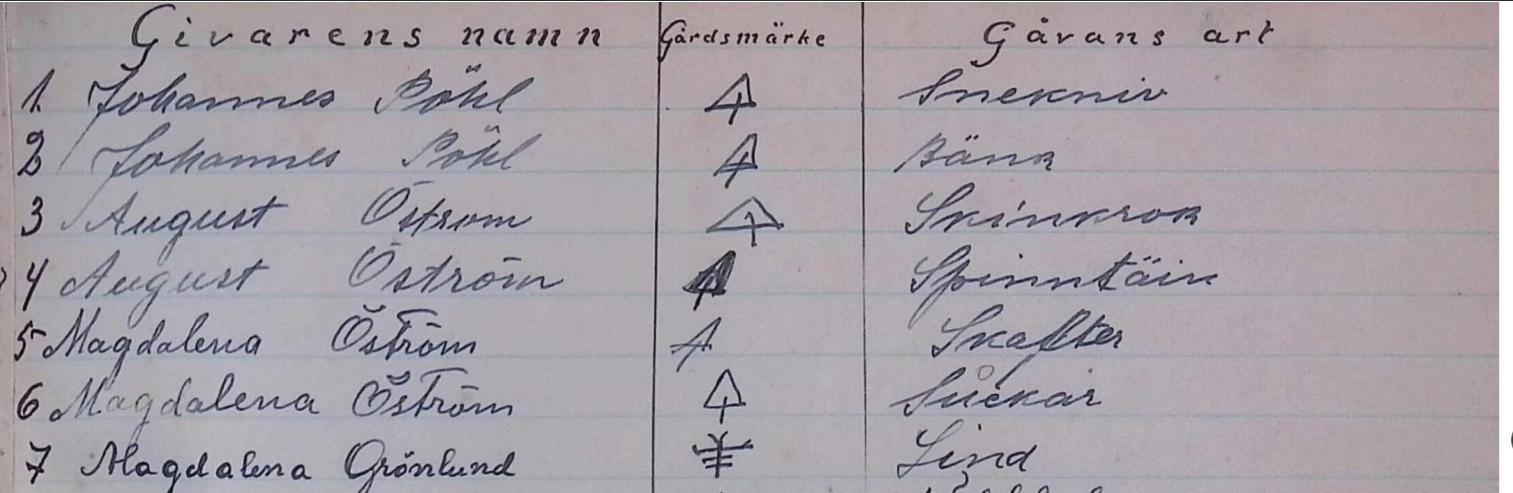 Givarens namn Gårdsmärke Gåvans art
1. Johannes Pöhl Snekniv
2 Johannes Pöhl Bänk
3 August Östrom Skinkrok
4 August Öström Spinntäin
5 Magdalena Öström Skafter
6 Magdalena Öström
7 Magdalena Grönlund Lind